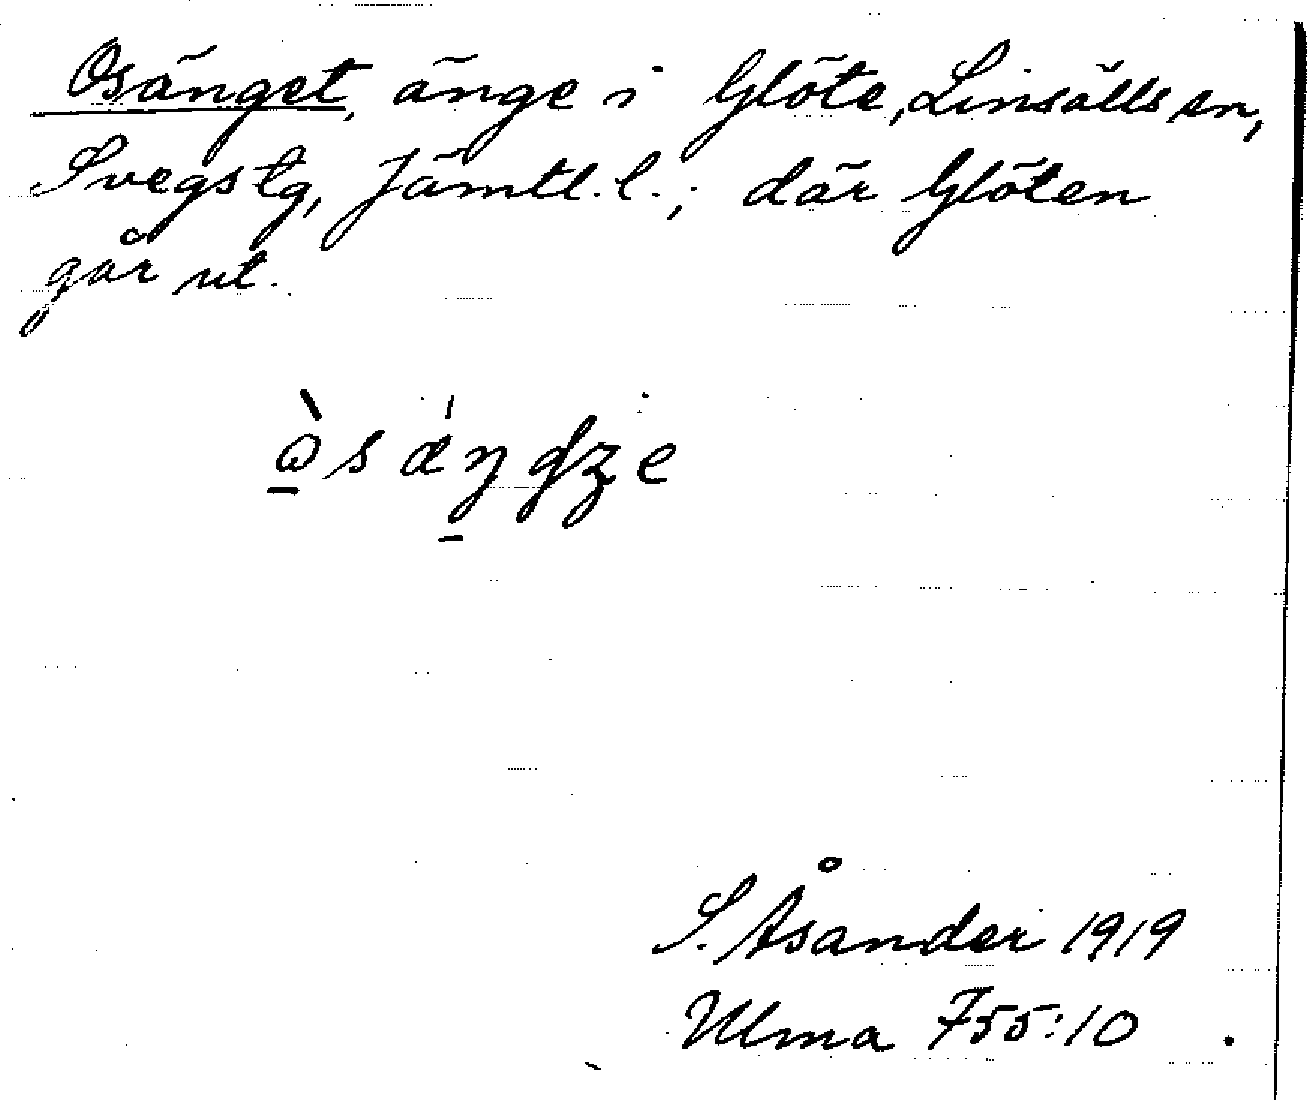 Osänget, änge i Glöte, Linsälls sn,
Svegs tg, Jämtl. l.; där Glöten
går ut.
ὼ̱sǽŋ̱ȡʒe
S. Åsander 1919
Ulma 755:10